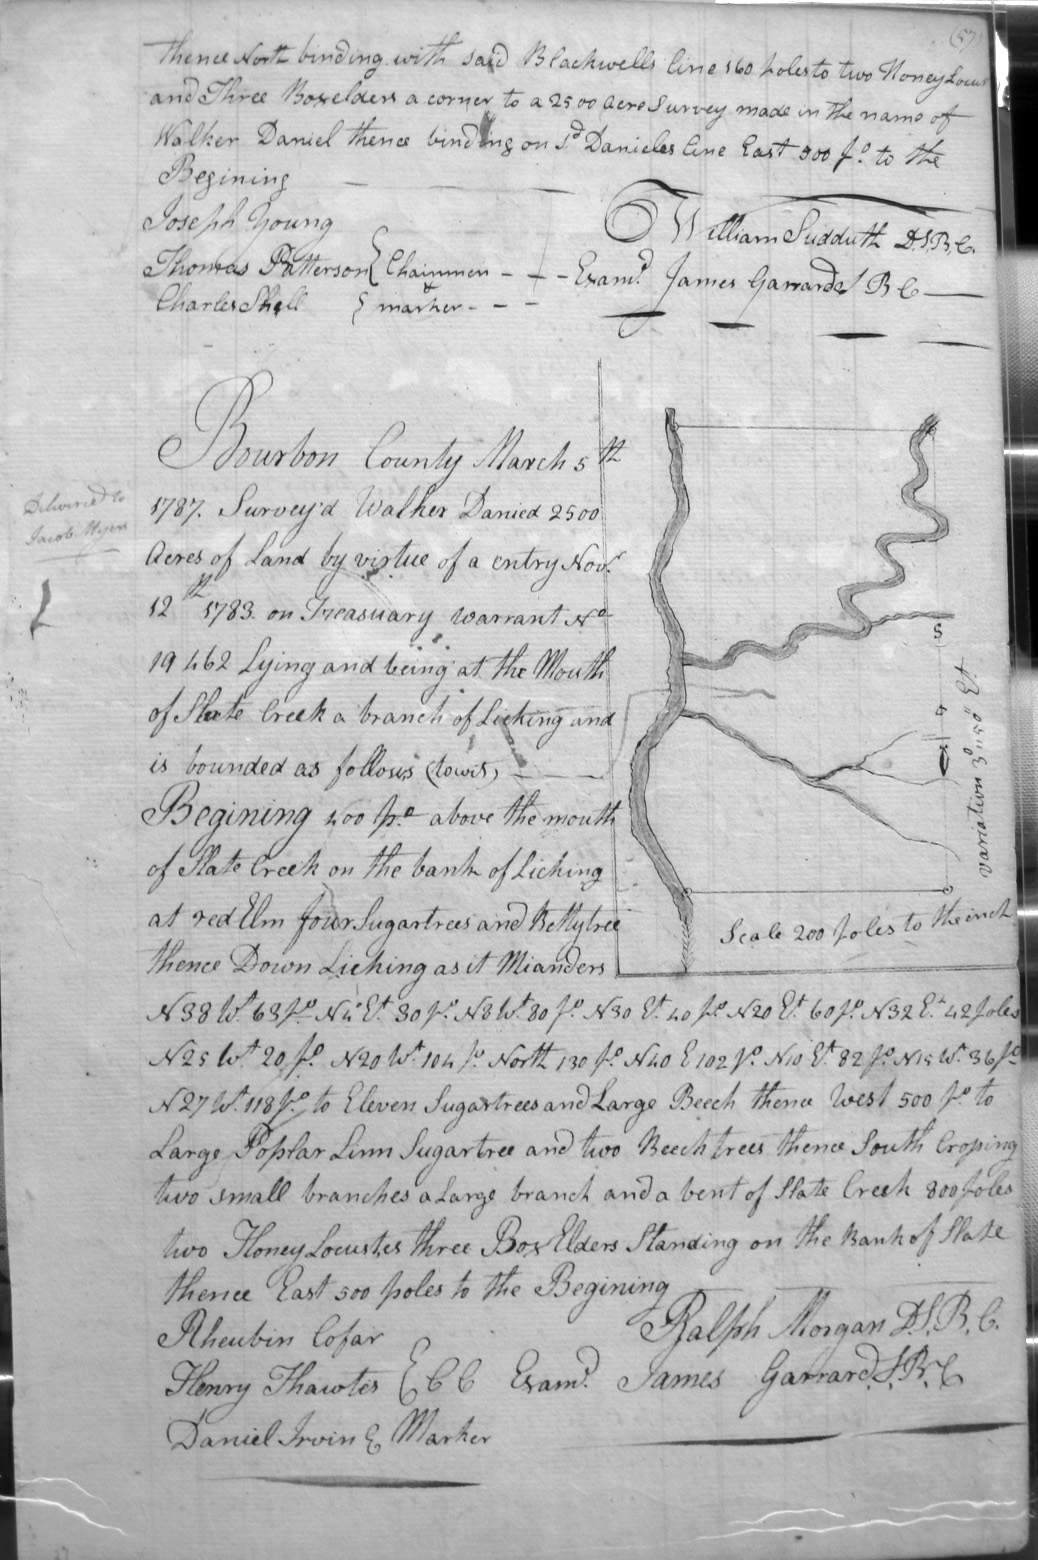 (57)
thence North binding with said Blackwells line 160 poles to two Honey Locus
and Three Boxelders a corner to a 2500 acre Survey made in the name of
Walker Daniel thence binding on Sd Danieles line East 500 po. to the
Begining
Joseph Young
William Sudduth D.S.B.C.
Thomas Patterson { Chainmen - - - Examd. James Garrard S B C
&
Charles Shell { marker - - -
Bourbon County March 5th
1787. Survey'd Walker Danied 2500
Acres of Land by virtue of a entry Novr.
12th 1783. on Treasuary Warrant No
19462 Lying and being at the Mouth
of Slate Creek a branch of Licking and
is bounded as follows (towit)
Begining 400 po. above the mouth
of Slate Creek on the bank of Licking
at red Elm four Sugartrees and Hettytree
thence Down Licking as it Mianders
Delivered to
Jacob Myers
S
variation 3o"50" Et
Scale 200 poles to the inch
N38 Wt. 63 po. N4o Et. 30 po. N8 Wt. 80 po. N30 Et. 40 po N20 Et. 60 po. N32 Et. 42 poles
N25 Wt 20 po. N20 Wt 104 po. North 130 po. N40 E 102 po. N10 Et. 82 po. N15 Wt. 36 po
N27 Wt. 118 po. to Eleven Sugartrees and Large Beech thence West 500 po. to
Large Poplar Linn Sugartree and two Beech trees thence South Croping
two small branches a Large branch and a bent of Slate Creek 800 poles
two Honey Locustes three Box Elders Standing on the Bank of Slate
thence East 500 poles to the Begining
Rheubin Cofar
Ralph Morgan D.S.B.C.
Henry Thawtes { C C Examd. James Garrard. S.B.C
Daniel Irvin & Marker